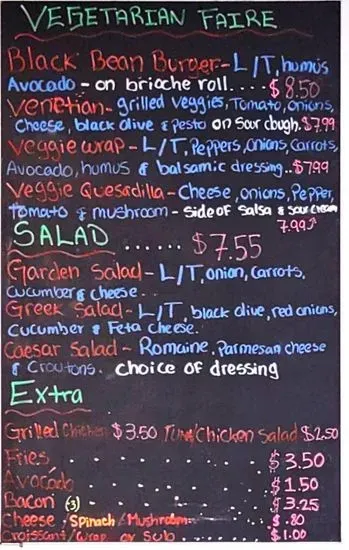 VEGETARIAN FAIRE
Black Bean Burger-L/T, humus
Avocado - on brioche roll....$8.50
Venetian- grilled veggies, Tomato, onions,
Cheese, black olive & pesto on sour dough. $7.99
Veggie wrap - L/T, Peppers, onions, Carrots,
Avocado, humus & balsamic dressing..$7.99
Veggie Quesadilla - Cheese, onions, Pepper,
Tomato & mushroom - side of salsa & sour cream
7.99
SALAD ...... $7.55
Garden Salad - L/T, onion, carrots,
Cucumber & cheese..
Greek Salad - L/T, black olive, red onions,
Cucumber & Feta cheese.
Caesar Salad - Romaine, Parmesan cheese
& Croutons. choice of dressing
Extra
Grilled Chicken $3.50 Tuna/Chicken Salad $2.50
Fries . . . . . . $3.50
Avocado . . . . . . $1.50
Bacon (3) . . . . . . $3.25
Cheese, Spinach/Mushroom $.80
Croissant/Wrap or Sub . . . $1.00